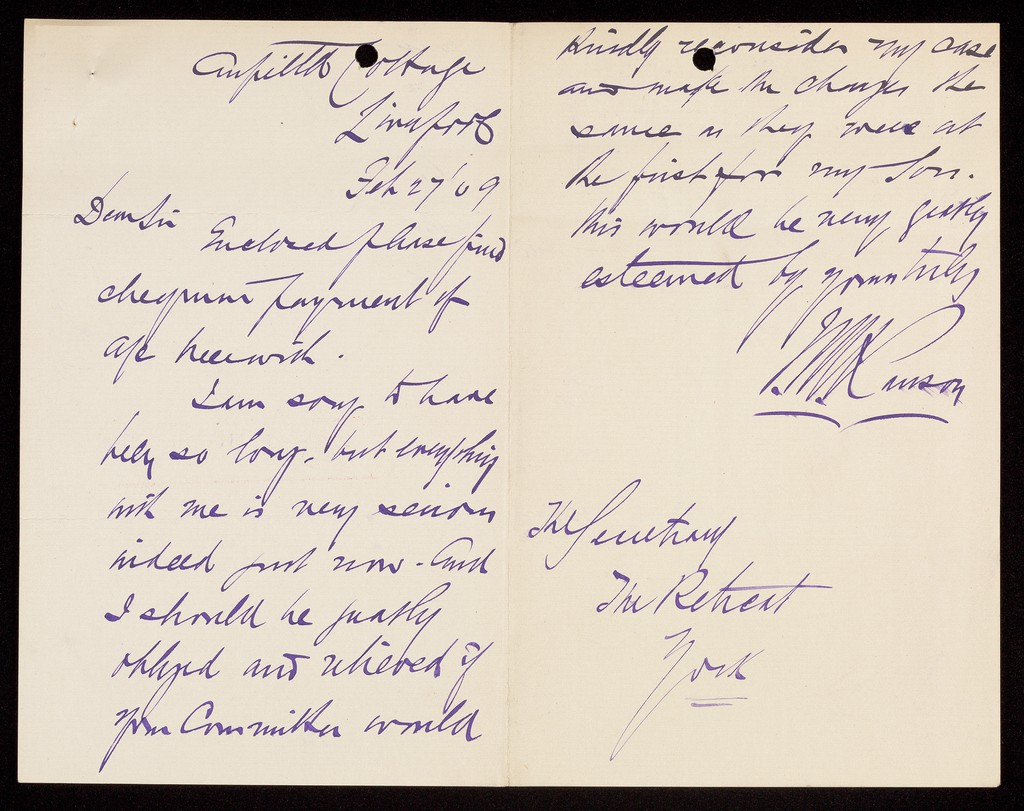 Anfield Cottage
Liverpool
Feb 27/09
Dear Sir
Enclosed please find
cheque in payment of
a/c herewith.
I am sorry to have
been so long, but everything
with me is very serious
indeed just now. And
I should be greatly
obliged and relieved if
your Committee would
kindly reconsider my case
and make the charges the
same as they were at
the first for my Son.
This would be very greatly
esteemed by yours truly
The Secretary
The Retreat
York